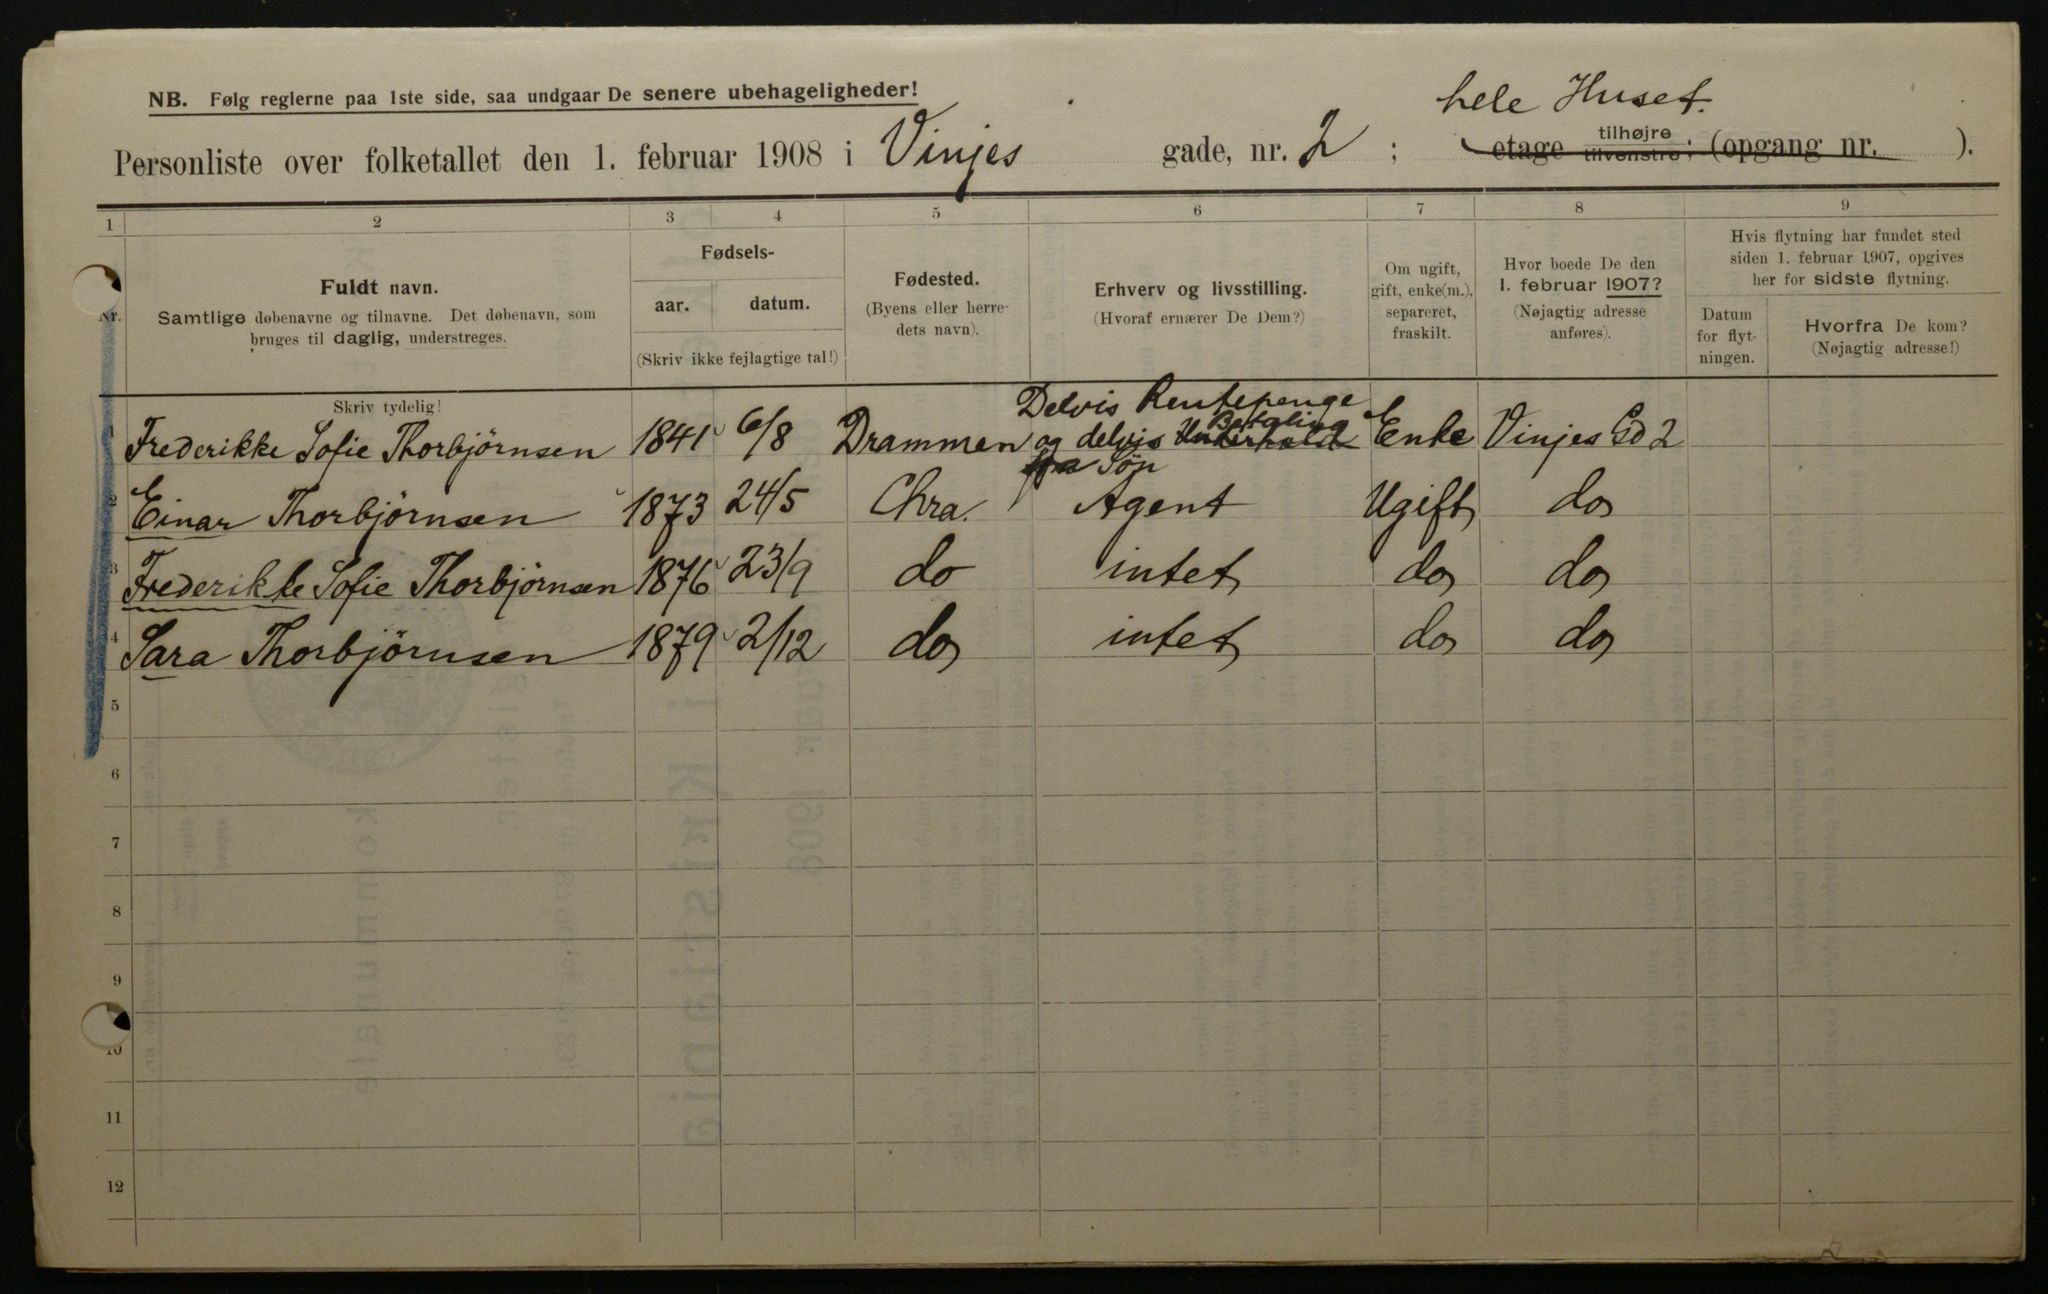 NB. Følg reglerne paa 1ste side, saa undgaar De senere ubehageligheder!
hele Huset.
Personliste over folketallet den 1. februar 1908 i Vinjes gade, nr. 2 ; etage tilhøjre tilvenstre; (opgang nr. ).
1 2 3 4 5 6 7 8 9
Nr.
Fuldt navn.
Samtlige døbenavne og tilnavne. Det døbenavn, som
bruges til daglig, understreges.
Fødsels-
aar. datum.
(Skriv ikke fejlagtige tal!)
Fødested.
(Byens eller herre-
dets navn).
Erhverv og livsstilling.
(Hvoraf ernærer De Dem?)
Om ugift,
gift, enke(m.),
separeret,
fraskilt.
Hvor boede De den
1. februar 1907?
(Nøjagtig adresse
anføres).
Hvis flytning har fundet sted
siden 1. februar 1907, opgives
her for sidste flytning.
Datum
for flyt-
ningen.
Hvorfra De kom?
(Nøjagtig adresse!)
Skriv tydelig!
Delvis Rentepenge
Betaling
1 Frederikke Sofie Thorbjørnsen 1841 6/8 Drammen og delvis Underhold Enke Vinjes Gd 2
fra Søn
2 Einar Thorbjørnsen 1873 24/5 Chra. Agent Ugift do
3 Frederikke Sofie Thorbjørnsen 1876 23/9 do intet do do
4 Sara Thorbjørnsen 1879 2/12 do intet do do
5
6
7
8
9
10
11
12